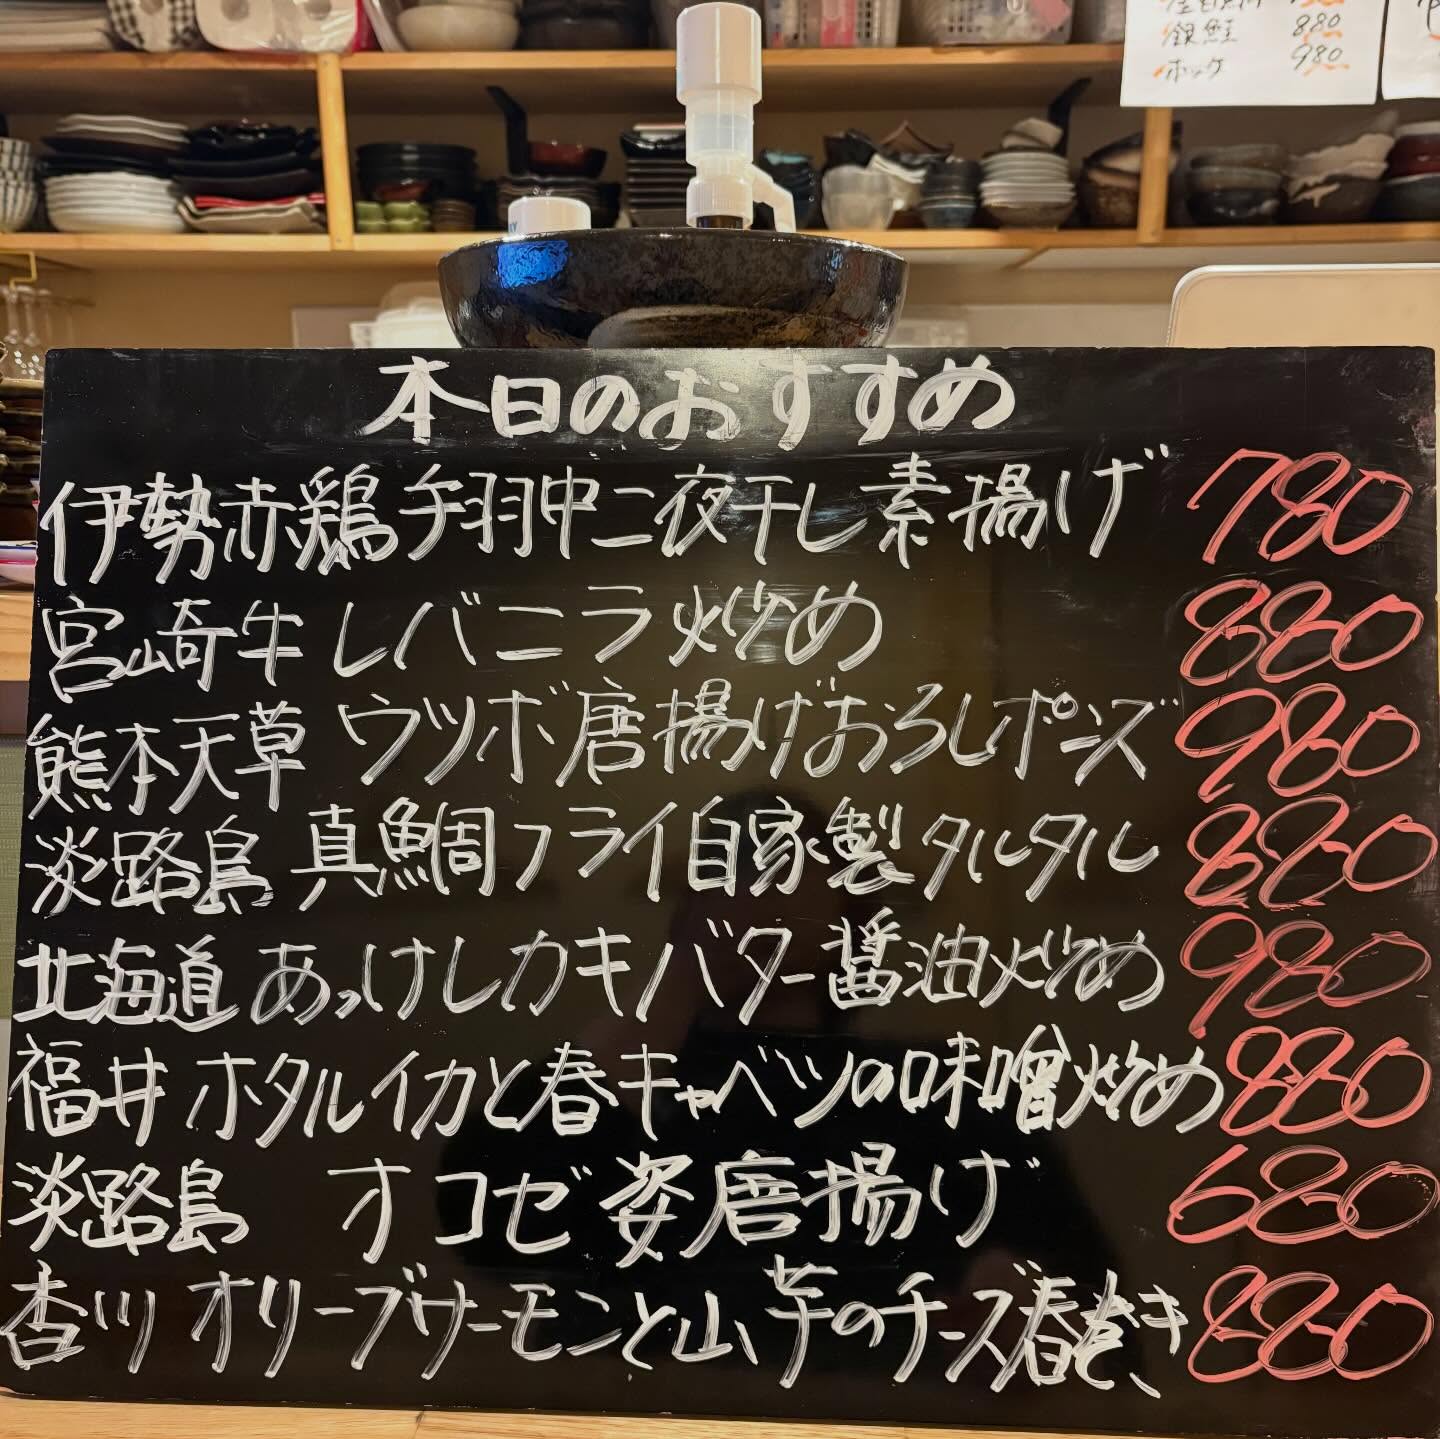 銀鮭 880
ホッケ 980
本日のおすすめ
伊勢赤鶏手羽中二夜干し素揚げ 780
宮崎牛レバニラ炒め 880
熊本天草 ウツボ唐揚げおろしポンズ 980
淡路島 真鯛フライ自家製タルタル 880
北海道 あっけしカキバター醤油炒め 980
福井 ホタルイカと春キャベツの味噌炒め 880
淡路島 オコゼ姿唐揚げ 680
香川 オリーブサーモンと山芋のチーズ春巻き 880